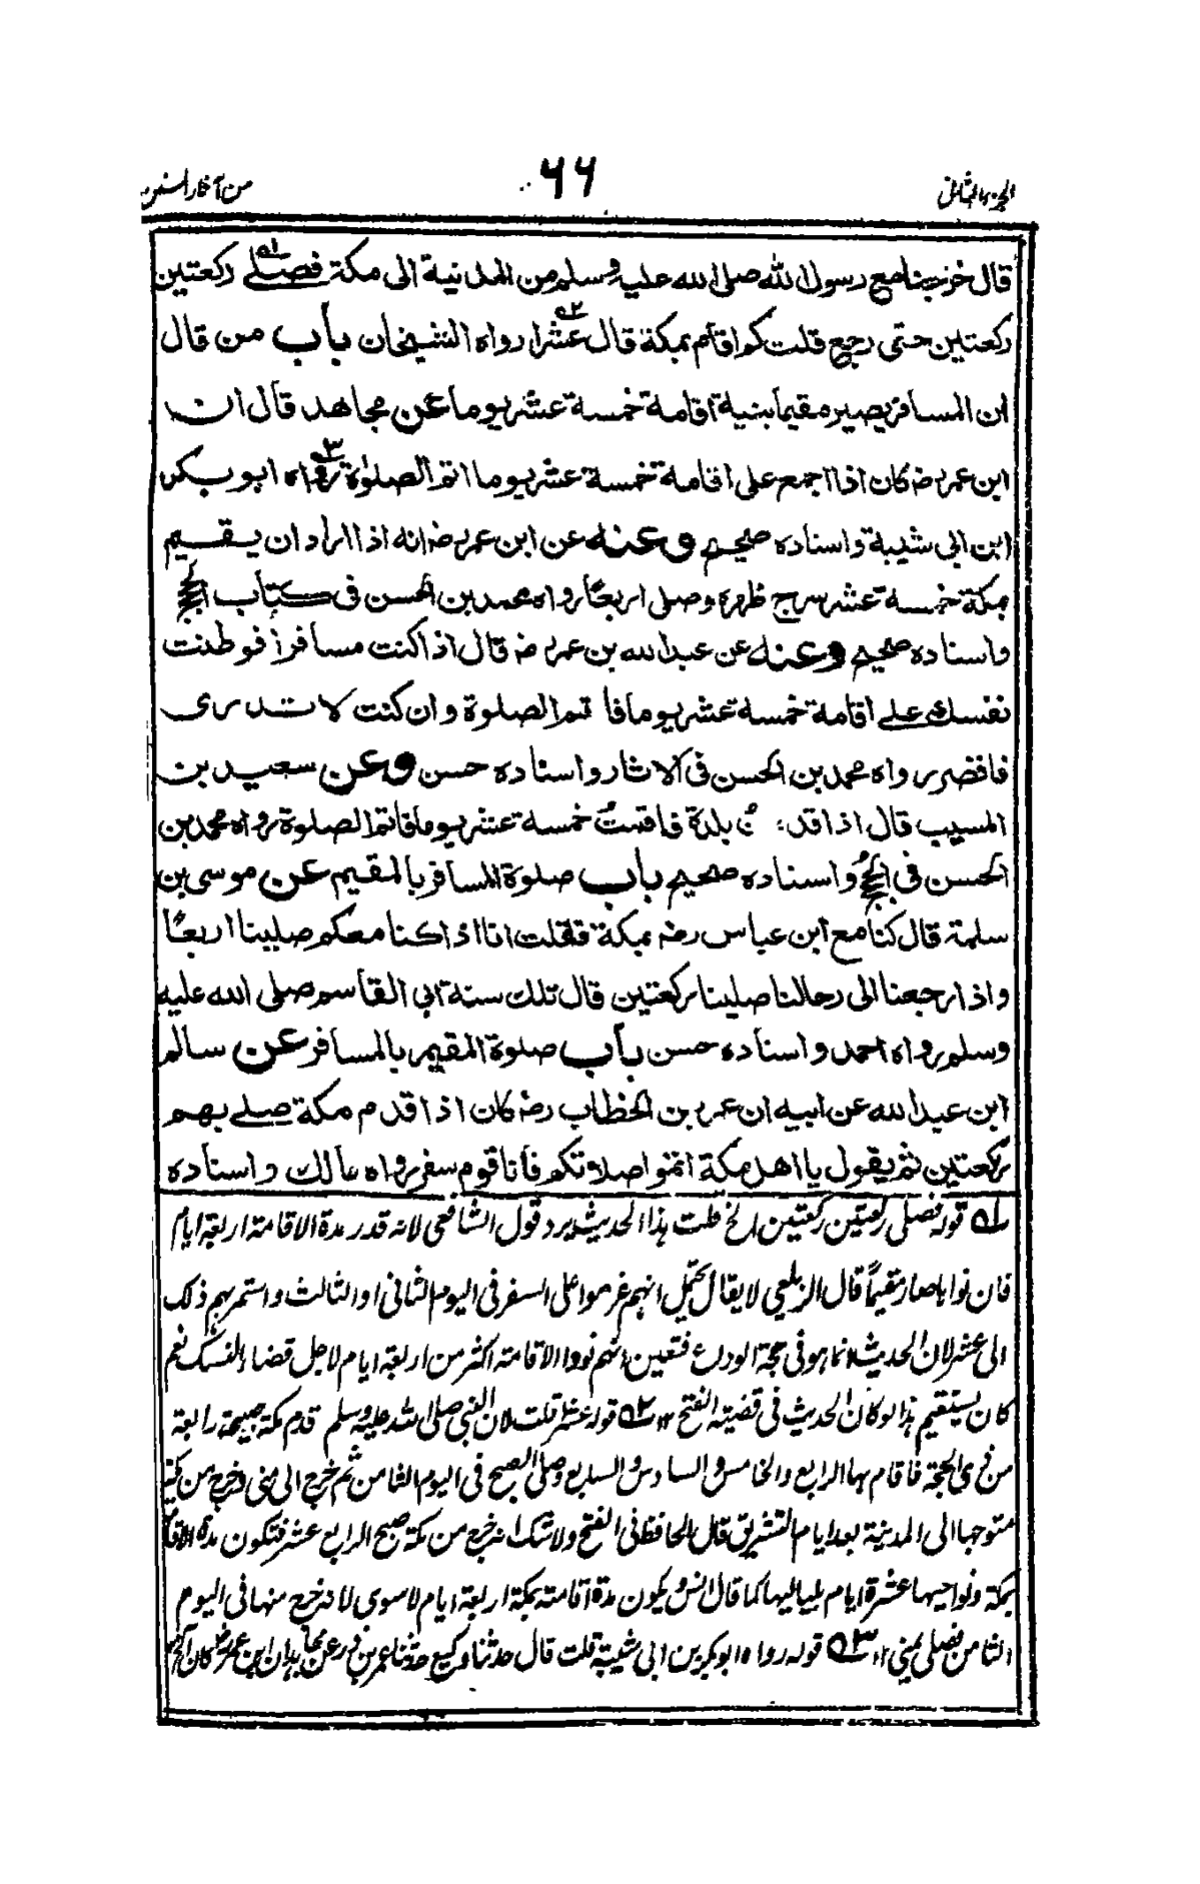 الجزء الثانى
٦٦
من آثار السنن
قال خرجنا مع رسول الله صلى الله عليه وسلم من المدينة الى مكة فصلے ركعتين
ركعتين حتى رجع قلت كم اقام بمكة قال عشرا رواه الشيخان باب من قال
ان المسافر يصير مقيما بنية اقامة خمسة عشر يوما عن مجاهد قال ان
ابن عمر رض كان اذا اجمع على اقامة خمسة عشر يوما اتم الصلوٰة رواه ابو بكر
ابن ابى شيبة واسناده صحيح وعنه عن ابن عمر رض انه اذا اراد ان يقيم
بمكة خمسة عشر سرح ظهره وصلى اربعا رواه محمد بن الحسن فى كتاب الحجج
واسناده صحيح وعنه عن عبد الله بن عمر رض قال اذا كنت مسافرا فوطنت
نفسك على اقامة خمسة عشر يوما فا تمم الصلوة وان كنت لا تدرى
فاقصر رواه محمد بن الحسن فى الاثار واسناده حسن وعن سعيد بن
المسيب قال اذا قدمت بلدة فاقمت خمسة عشر يوما فاتم الصلوة رواه محمد بن
الحسن فى الحجج واسناده صحيح باب صلوة المسافر بالمقيم عن موسى بن
سلمة قال كنا مع ابن عباس رض بمكة فقلت انا اذا كنا معكم صلينا اربعا
واذا رجعنا الى رحالنا صلينا ركعتين قال تلك سنة ابى القاسم صلى الله عليه
وسلم رواه احمد واسناده حسن باب صلوة المقيم بالمسافر عن سالم
ابن عبد الله عن ابيه ان عمر بن الخطاب رض كان اذا قدم مكة صلے بهم
ركعتين ثم يقول يا اهل مكة اتموا صلاتكم فانا قوم سفر رواه مالك واسناده
له قوله فصلى ركعتين ركعتين الخ قلت هذا الحديث يرد قول الشافعى لانه قدر مدة الاقامة اربعة ايام
فان نواها صار مقيماً قال الزيلعى لا يقال يحتمل انهم عزموا على السفر فى اليوم الثانى او الثالث واستمر بهم ذلك
الى عشر لان الحديث انما هو فى حجة الوداع فتعين انهم نووا الاقامة اكثر من اربعة ايام لاجل قضاء النسك نعم
كان يستقيم هذا لو كان الحديث فى قضية الفتح ١٢ ٢ه قوله عشرا قلت لان النبى صلى الله عليه وسلم قدم مكة صبيحة رابعة
من ذى الحجة فاقام بها الرابع والخامس والسادس والسابع وصلى الصبح فى اليوم الثامن ثم خرج الى منى وخرج من مكة
متوجها الى المدينة بعد ايام التشريق قال الحافظ فى الفتح ولا شك انه خرج من مكة صبح الرابع عشر فتكون مدة الاقامة
بمكة ونواحيها عشرة ايام بلياليها كما قال انس ويكون مدة اقامته بمكة اربعة ايام لا سوى لانه خرج منها فى اليوم
الثامن فصلى بمنى ١٢ ٣ه قوله رواه ابو بكر بن ابى شيبة قلت قال حدثنا وكيع حدثنا عمر بن ذر عن مجاهد ان ابن عمر رض كان